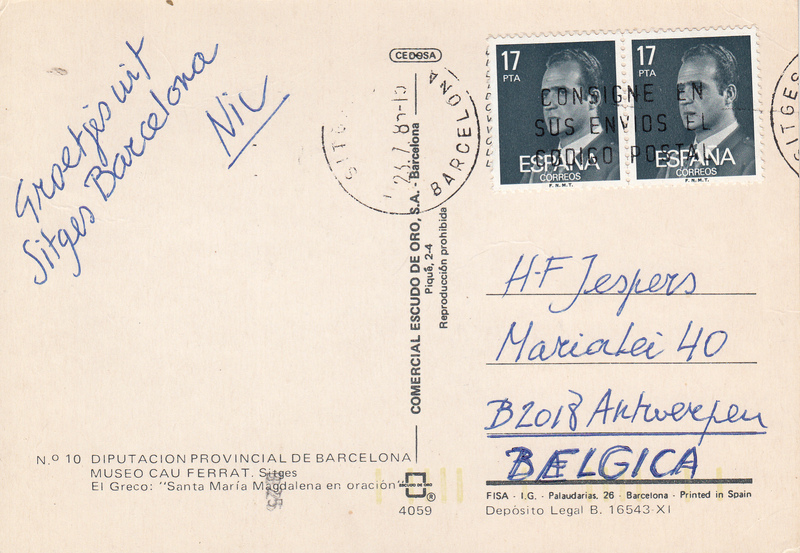 Groetjes uit
Sitges Barcelona
Nic
CEDOSA
SITG
BARCELONA
17
PTA
ESPAÑA
CORREOS
F.N.M.T.
17
PTA
ESPAÑA
CORREOS
F.N.M.T.
CONSIGNE EN
SUS ENVIOS EL
CODIGO POSTAL
SITGES
COMERCIAL ESCUDO DE ORO, S.A. - Barcelona
Piqué, 2-4
Reproducción prohibida
H-F Jespers
Marialei 40
B2018 Antwerpen
BELGICA
N.º 10 DIPUTACION PROVINCIAL DE BARCELONA
MUSEO CAU FERRAT. Sitges
El Greco: "Santa María Magdalena en oración"
ESCUDO DE ORO
®
4059
FISA - I.G. - Palaudarias, 26 - Barcelona - Printed in Spain
Depósito Legal B. 16543-XI